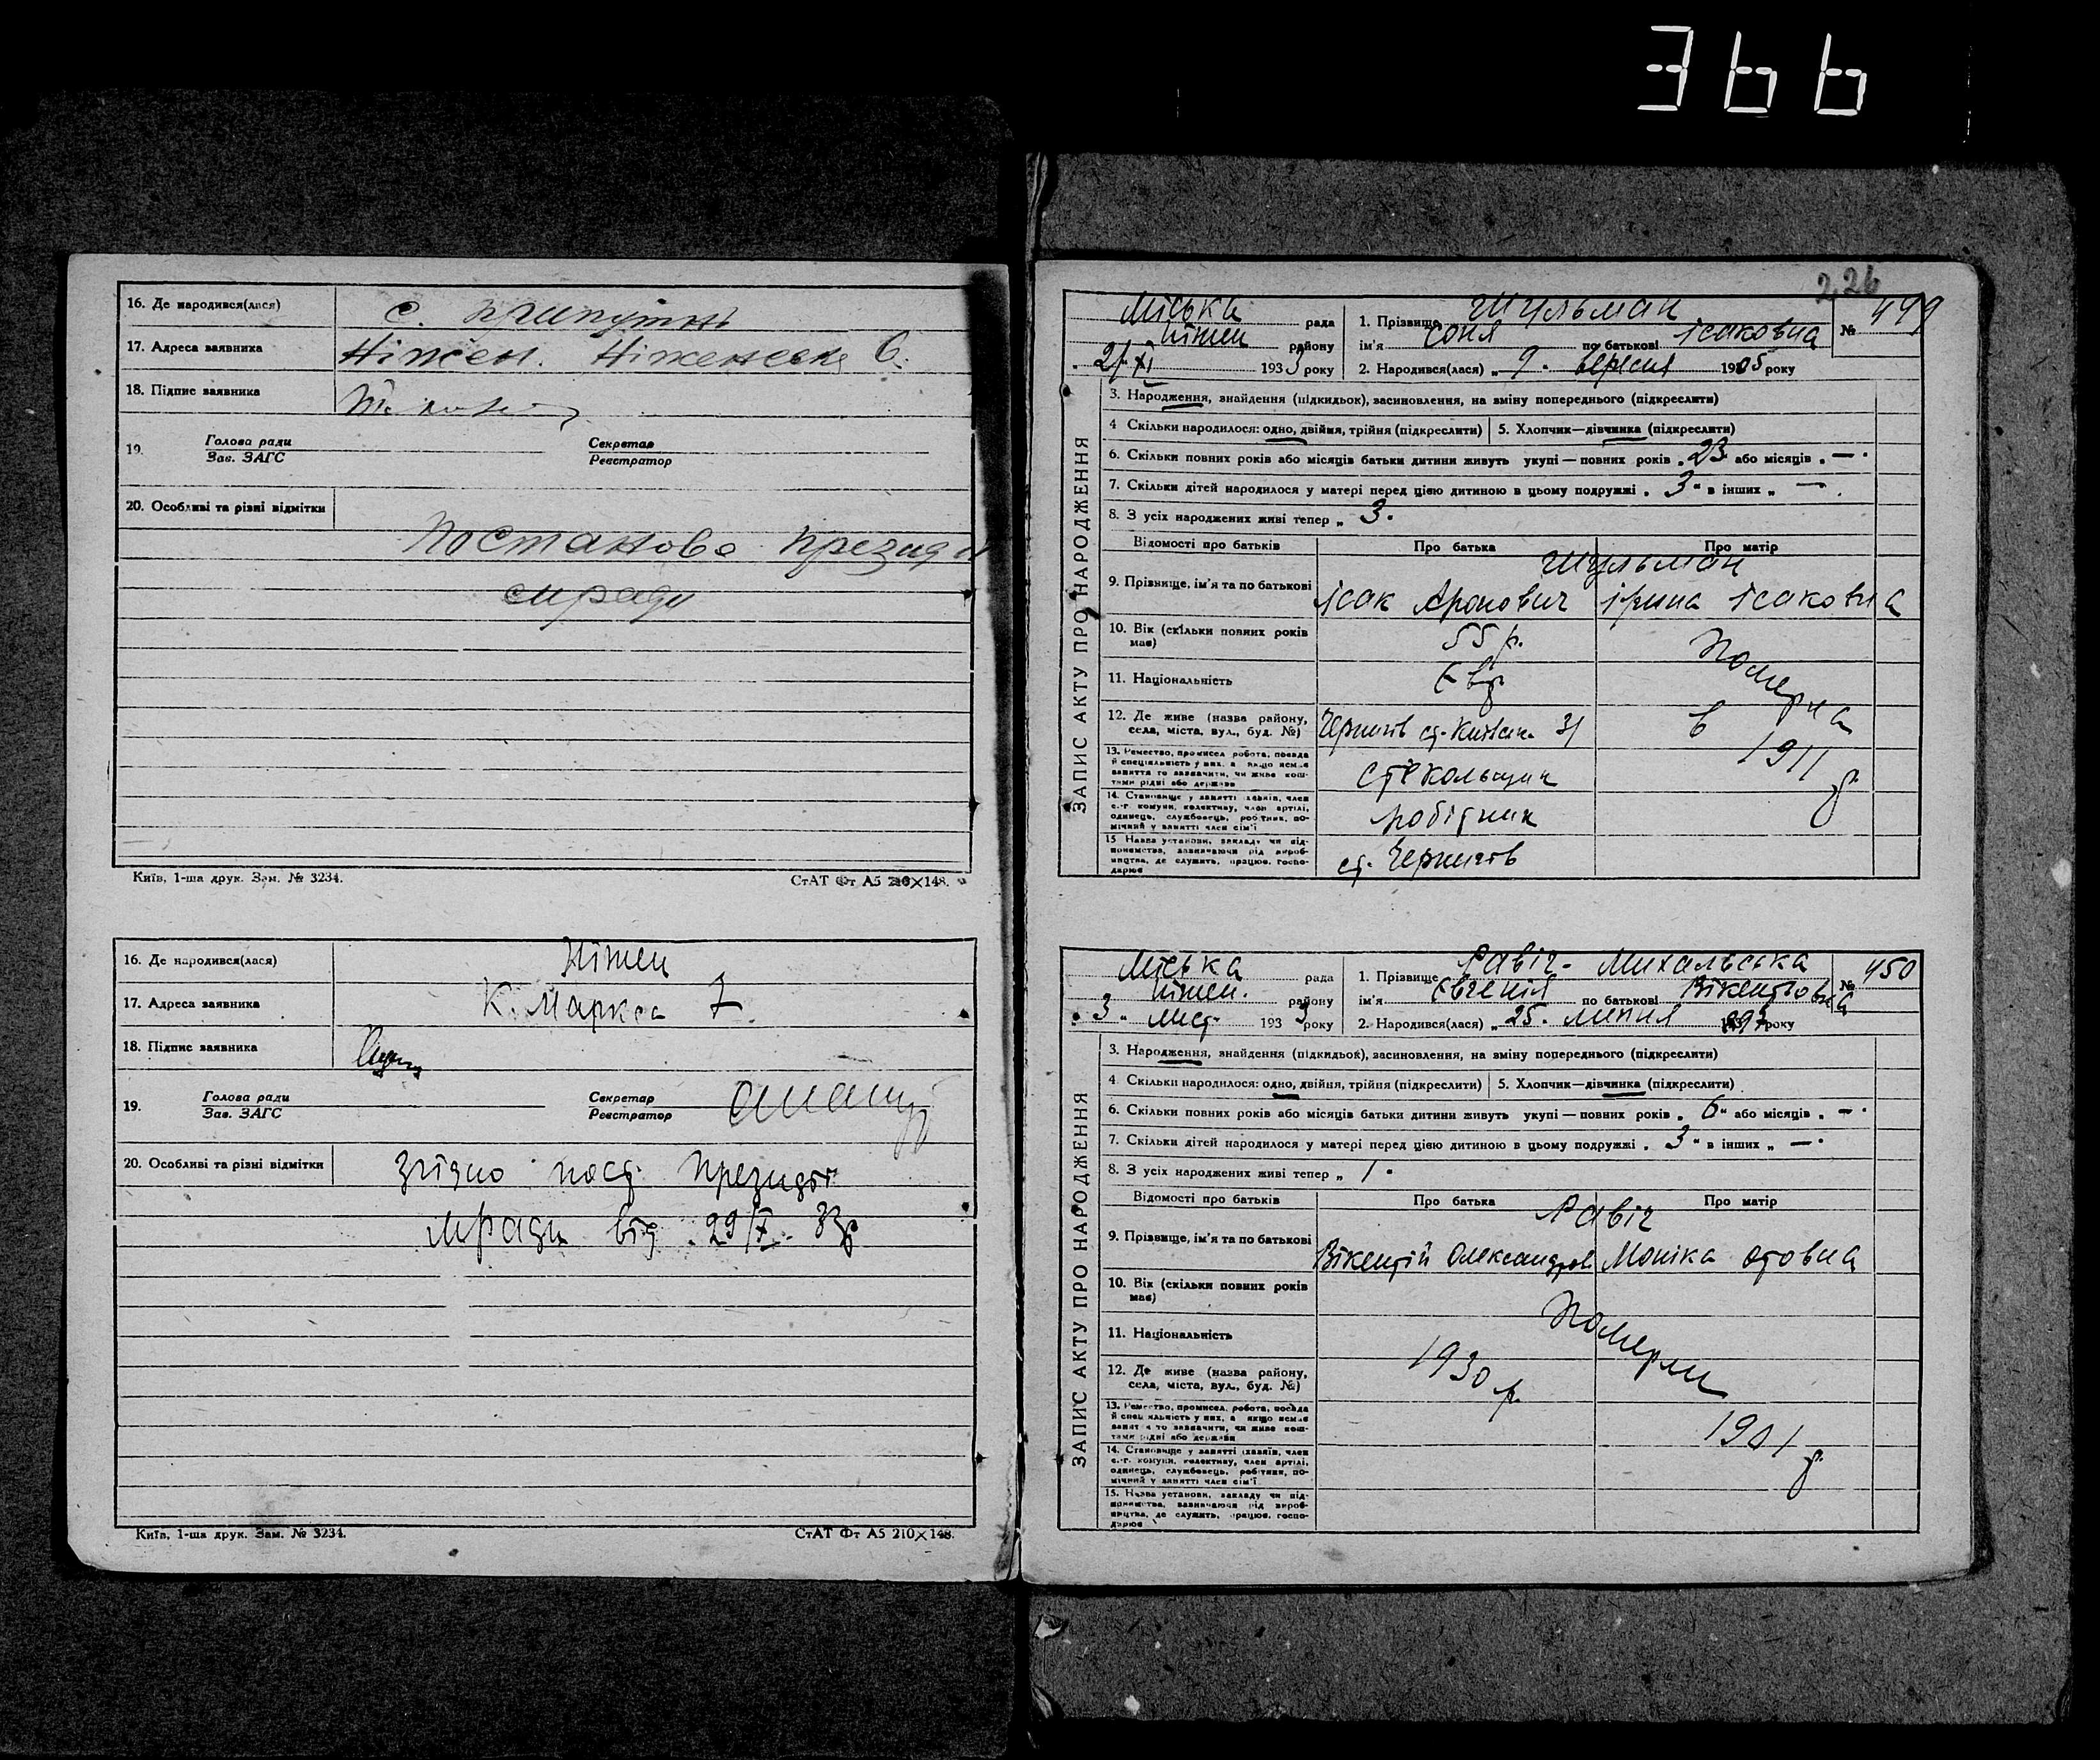 366
16. Де народився(лася) с. Припутнь
17. Адреса заявника Ніжен. Ніженська 6.
18. Підпис заявника
19. Голова ради Секретар
Зав. ЗАГС Реєстратор
20. Особливі та різні відмітки
Постанова През
мради
Київ, 1-ша друк. Зам. № 3234. СтАТ Фт А5 210×148.
16. Де народився(лася) Ніжен
17. Адреса заявника К. Маркса 7.
18. Підпис заявника
19. Голова ради Секретар
Зав. ЗАГС Реєстратор
20. Особливі та різні відмітки Згідно пост. Президії
мради від 29/X. 33р
Київ, 1-ша друк. Зам. № 3234. СтАТ Фт А5 210×148.
226
Міська рада 1. Прізвище Шульман № 449
Ніжен району ім'я Соня по батькові Ісаковна
2/XI 1933 року 2. Народився(лася) „9. вересня 1905 року
ЗАПИС АКТУ ПРО НАРОДЖЕННЯ
3. Народження, знайдення (підкидьок), засиновлення, на зміну попереднього (підкреслити)
4 Скільки народилося: одно, двійня, трійня (підкреслити) 5. Хлопчик—дівчинка (підкреслити)
6. Скільки повних років або місяців батьки дитини живуть укупі — повних років „ 23 або місяців „ —
7. Скільки дітей народилося у матері перед цією дитиною в цьому подружжі „ 3 " в інших „ —
8. З усіх народжених живі тепер „ 3.
Відомості про батьків Про батька Про матір
Шульман
9. Прізвище, ім'я та по батькові Ісак Аронович Ірина Ісаковна
10. Вік (скільки повних років має) 55 р. Померла
11. Національність Євр.
12. Де живе (назва району, села, міста, вул., буд. №) Чернигів 31 в 1911 р
13. Ремество, промисел, робота, посада й спеціяльність у них, а якщо немає заняття то зазначити, чи живе коштами рідні або держави Стекольщик
14. Становище у занятті (хазяїн, член с.-г. комуни, колективу, член артілі, одинець, службовець, робітник, помічний у занятті член сім'ї Робітник
15 Назва установи, закладу чи підприємства, зазначаючи рід виробництва, де служить, працює, господарює ст. Чернигів
Міська рада 1. Прізвище Равіч-Михальська № 450
Ніжен. району ім'я Євгенія по батькові Вікентіовна
„ 3 " лист. 1933 року 2. Народився(лася) „ 25. липня року
ЗАПИС АКТУ ПРО НАРОДЖЕННЯ
3. Народження, знайдення (підкидьок), засиновлення, на зміну попереднього (підкреслити)
4 Скільки народилося: одно, двійня, трійня (підкреслити) 5. Хлопчик—дівчинка (підкреслити)
6. Скільки повних років або місяців батьки дитини живуть укупі — повних років „ 6 " або місяців „ —
7. Скільки дітей народилося у матері перед цією дитиною в цьому подружжі „ 3 " в інших „ —
8. З усіх народжених живі тепер „ 1.
Відомості про батьків Про батька Про матір
Равіч
9. Прізвище, ім'я та по батькові Вікентій Олександров Моніка Отовна
10. Вік (скільки повних років має)
Померли
11. Національність
12. Де живе (назва району, села, міста, вул., буд. №) 1930 р.
13. Ремество, промисел, робота, посада й спеціяльність у них, а якщо немає заняття то зазначити, чи живе коштами рідні або держави
1901 р
14. Становище у занятті (хазяїн, член с.-г. комуни, колективу, член артілі, одинець, службовець, робітник, помічний у занятті член сім'ї
15. Назва установи, закладу чи підприємства, зазначаючи рід виробництва, де служить, працює, господарює